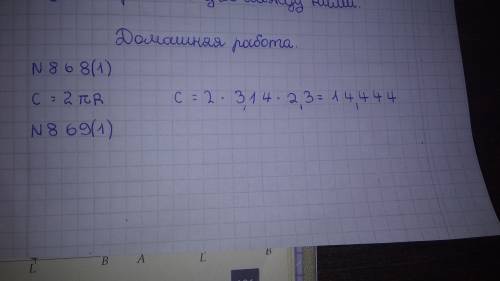 ними.
Домашняя работа.
N868(1)
C = 2πR C = 2 · 3,14 · 2,3 = 14,444
N869(1)
L B A L B